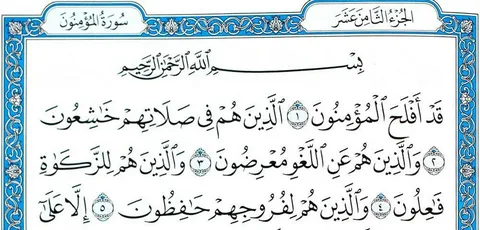 الجزء الثامن عشر
سورة المؤمنون
بسم الله الرحمن الرحيم
قَدْ أَفْلَحَ الْمُؤْمِنُونَ ١ الَّذِينَ هُمْ فِي صَلَاتِهِمْ خَاشِعُونَ
٢ وَالَّذِينَ هُمْ عَنِ اللَّغْوِ مُعْرِضُونَ ٣ وَالَّذِينَ هُمْ لِلزَّكَوٰةِ
فَاعِلُونَ ٤ وَالَّذِينَ هُمْ لِفُرُوجِهِمْ حَافِظُونَ ٥ إِلَّا عَلَىٰ